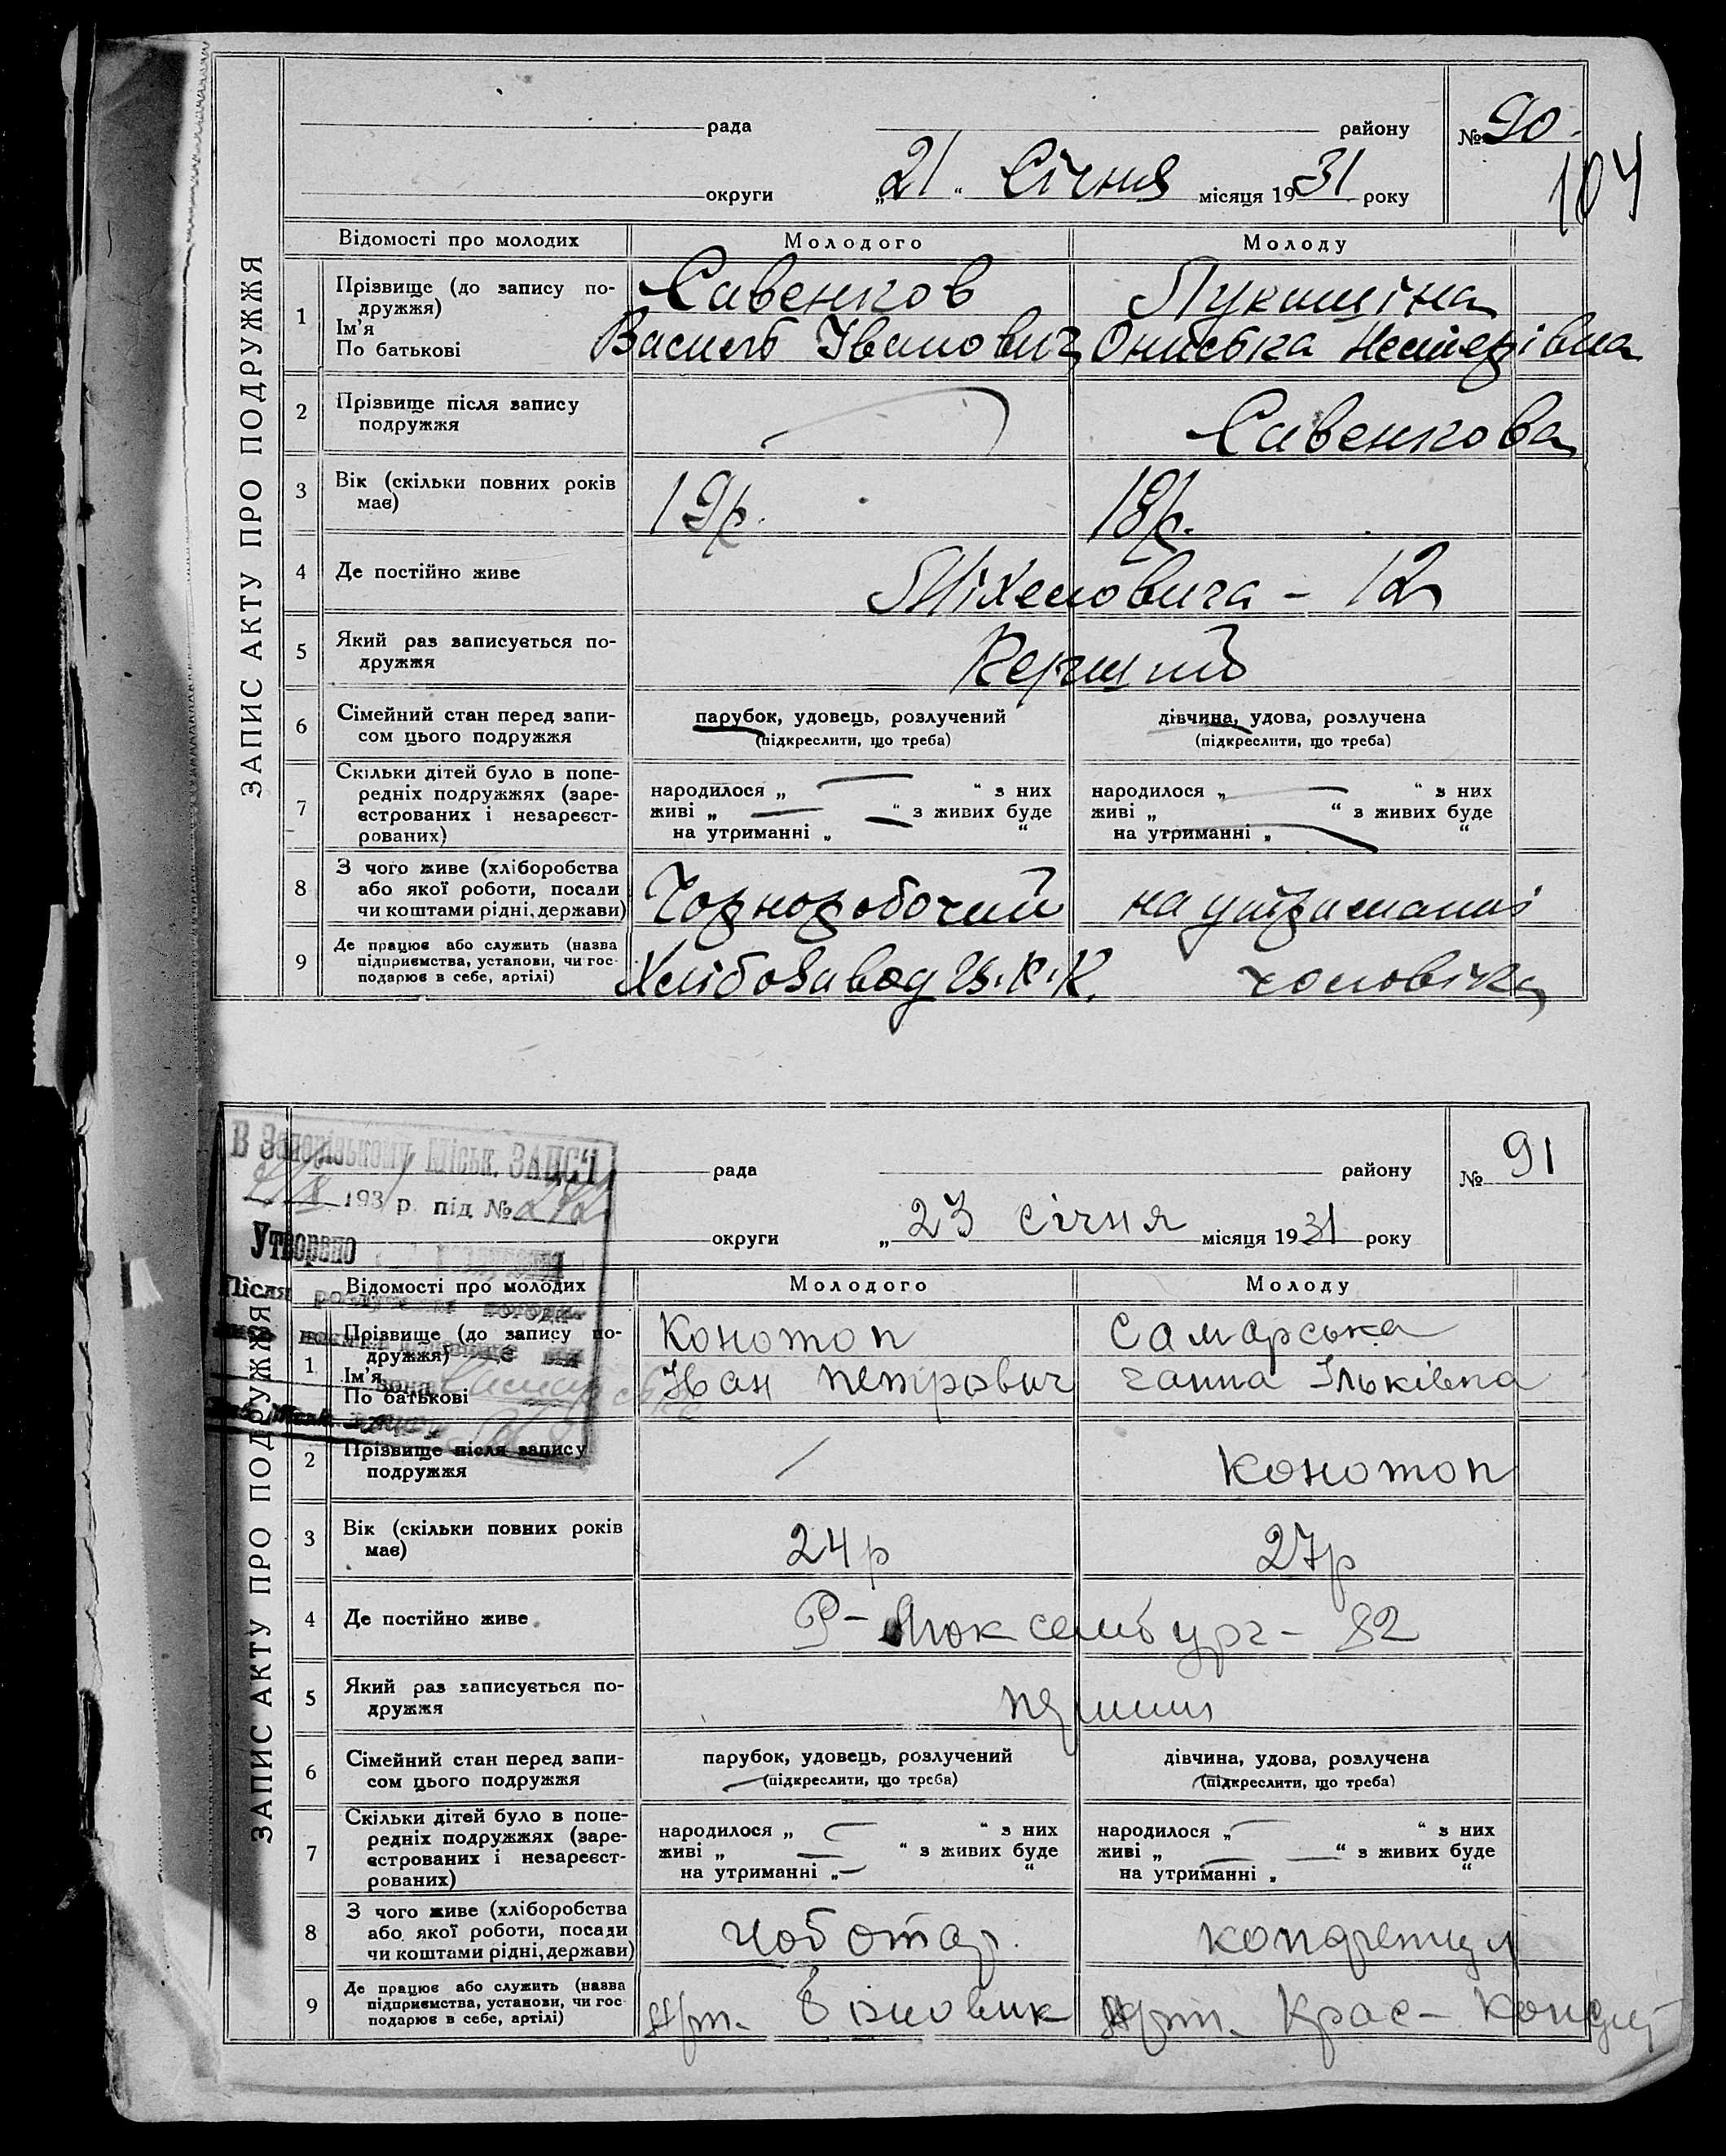 ЗАПИС АКТУ ПРО ПОДРУЖЖЯ
рада району № 90
104
округи „21“ Січня місяця 1931 року
Відомості про молодих Молодого Молоду
1 Прізвище (до запису по- Савенков
дружжя)
Ім'я Василь Іванович Ониська Нестерівна
По батькові
2 Прізвище після запису Савенкова
подружжя
3 Вік (скільки повних років 19р. 18р.
має)
4 Де постійно живе 12
5 Який раз записується по- Перший
дружжя
6 Сімейний стан перед запи- парубок, удовець, розлучений дівчина, удова, розлучена
сом цього подружжя (підкреслити, що треба) (підкреслити, що треба)
7 Скільки дітей було в попе- народилося „ — “ з них народилося „ — “ з них
редніх подружжях (заре- живі „ — “ з живих буде живі „ “ з живих буде
єстрованих і незареєст- на утриманні „ “ на утриманні „ “
рованих)
8 З чого живе (хліборобства Чорноробочий на утриманні
або якої роботи, посади
чи коштами рідні, держави)
9 Де працює або служить (назва Хлібозавод чоловіка
підприємства, установи, чи гос-
подарює в себе, артілі)
ЗАПИС АКТУ ПРО ПОДРУЖЖЯ
В Запорізькому Міськ. ЗАЦС'І
193 р. під №
Утворено
Після
рада району № 91
округи „23 січня місяця 1931 року
Відомості про молодих Молодого Молоду
1 Прізвище (до запису по- Конотоп Самарська
дружжя)
Ім'я Іван Петрович Ганна Ільківна
По батькові
2 Прізвище після запису / Конотоп
подружжя
3 Вік (скільки повних років 24р 27р
має)
4 Де постійно живе Р-Люксембург - 82
5 Який раз записується по- перший
дружжя
6 Сімейний стан перед запи- парубок, удовець, розлучений дівчина, удова, розлучена
сом цього подружжя (підкреслити, що треба) (підкреслити, що треба)
7 Скільки дітей було в попе- народилося „ — “ з них народилося „ — “ з них
редніх подружжях (заре- живі „ — “ з живих буде живі „ — “ з живих буде
єстрованих і незареєст- на утриманні „— “ на утриманні „ “
рованих)
8 З чого живе (хліборобства Чоботар.
або якої роботи, посади
чи коштами рідні, держави)
9 Де працює або служить (назва Арт. Арт. Крас-
підприємства, установи, чи гос-
подарює в себе, артілі)